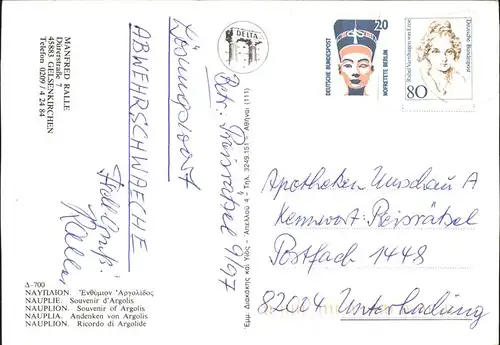 MANFRED RALLE
Dillerstraße 7
45883 GELSENKIRCHEN
Telefon 0209 / 4 24 84
Lösungswort
ABWEHRSCHWAECHE
Betr.: Preisrätsel 9/97
Ralle
DELTA
20
DEUTSCHE BUNDESPOST
NOFRETETE BERLIN
80
Deutsche Bundespost
Rahel Varnhagen von Ense
Apotheken Umschau A
Kennwort: Preisrätsel
Postfach 1448
82004 Unterhaching
Ἐμμ. Διακάκης καὶ Υἱός - Ἀπελλοῦ 4 - Τηλ. 3249.151 - Ἀθῆναι (111)
Δ-700
ΝΑΥΠΛΙΟΝ. Ἐνθύμιον Ἀργολίδος
NAUPLIE. Souvenir d'Argolis
NAUPLION. Souvenir of Argolis
NAUPLIA. Andenken von Argolis
NAUPLION. Ricordo di Argolide